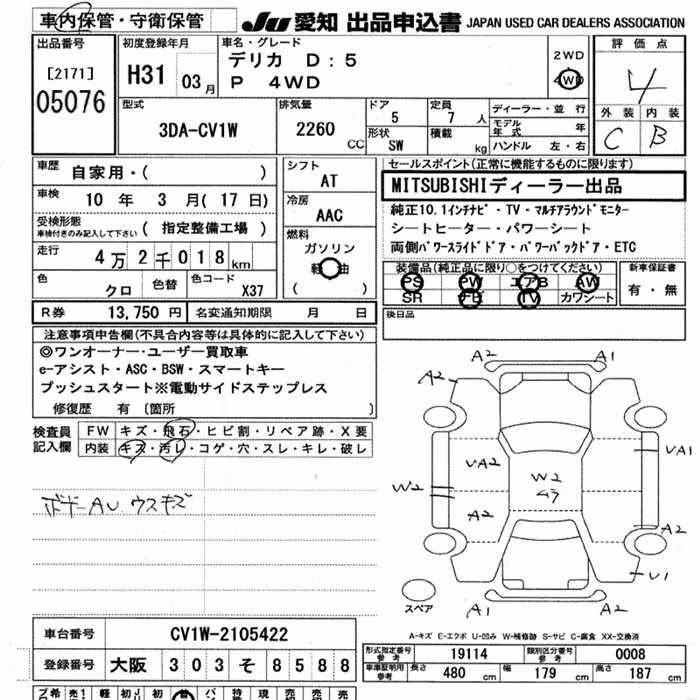 車内保管・守衛保管 Ju 愛知 出品申込書 JAPAN USED CAR DEALERS ASSOCIATION
出品番号 初度登録年月 車名・グレード 評価点
[2171] H31 03月 デリカ D:5 2WD
05076 P 4WD 4WD 4
型式 排気量 ドア 定員 ディーラー・並行 外装 内装
3DA-CV1W 2260CC 5 7人 モデル年式 年 C B
形状 SW 積載 kg ハンドル 左・右
車歴 自家用・( ) シフト AT セールスポイント(正常に機能するものに限ります)
車検 10年 3月(17日) 冷房 AAC MITSUBISHIディーラー出品
受検形態 車検付きのみ記入して下さい (指定整備工場) 燃料 純正10.1インチナビ・TV・マルチアラウンドモニター
シートヒーター・パワーシート
走行 4万2千018km ガソリン 両側パワースライドドア・パワーバックドア・ETC
軽油
( )
色 クロ 色替 色コード X37 装備品(純正品に限り○をつけてください) 新車保証書
PS PW エアB AW 有・無
SR ナビ TV カワシート
R券 13,750円 名変通知期限 月 日 後日品
注意事項申告欄(不具合内容等は具体的に記入して下さい)
◎ワンオーナー・ユーザー買取車
e-アシスト・ASC・BSW・スマートキー
プッシュスタート※電動サイドステップレス
修復歴 有 〔箇所 〕
検査員記入欄 FW キズ・飛石・ヒビ割・リペア跡・X要
内装 キズ・汚レ・コゲ・穴・スレ・キレ・破レ
ボデーAU ウスキズ
A2 A1
A2
VA2 W2 ムラ VA1
W2
A2 A2
U1
スペア A1 A2
A-キズ E-エクボ U-凹み W-補修跡 S-サビ C-腐食 XX-交換済
車台番号 CV1W-2105422
登録番号 大阪 303 そ 8588
形式指定番号 参考 19114 類別区分番号 参考 0008
車庫証明用 参考 長さ 480cm 幅 179cm 高さ 187cm